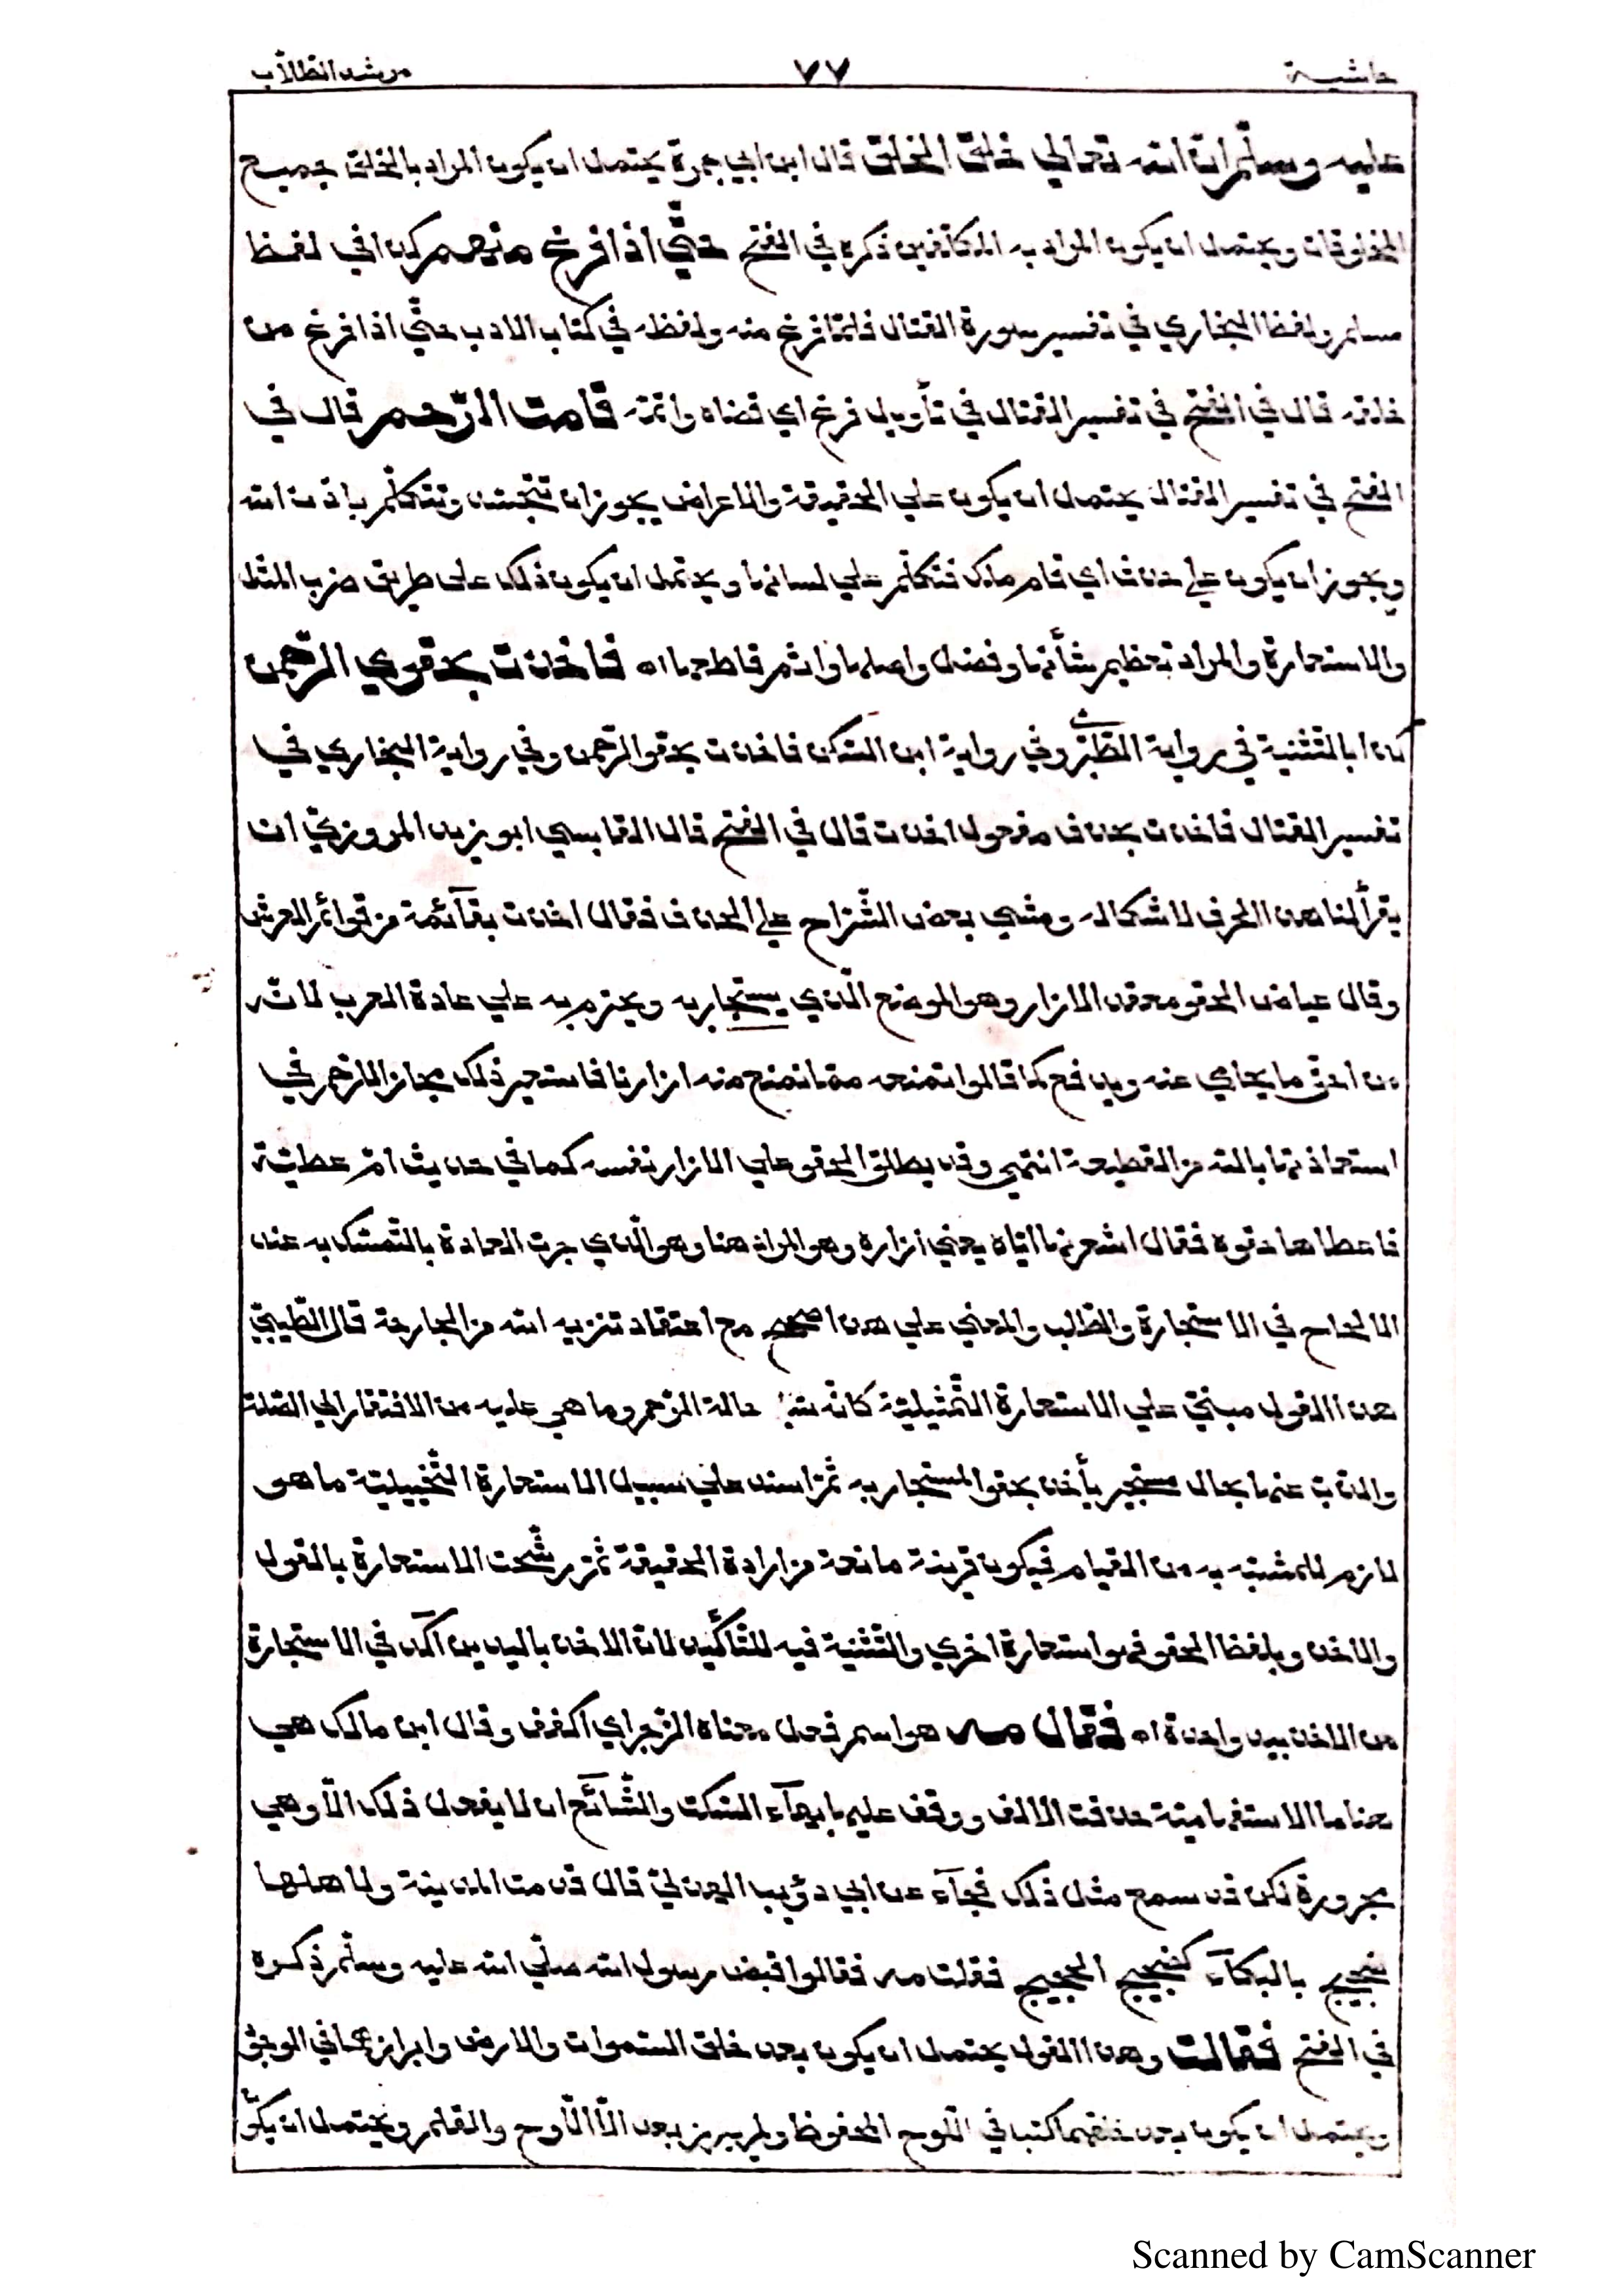 حاشية ٧٧ مرشد الطلاب
عليه وسلم ان الله تعالي خلق الخلق قال ابن ابي جمرة يحتمل ان يكون المراد بالخلق جميع
المخلوقات ويحتمل ان يكون المراد به المكلفين ذكره في الفتح حتّي اذا فرغ منهم كذا في لفظ
مسلم ولفظ البخاري في تفسير سورة القتال فلمّا فرغ منه ولفظه في كتاب الادب حتّي اذا فرغ من
خلقه قال في الفتح في تفسير القتال في تأويل فرغ اي قضاه واتمّه قامت الرّحم قال في
الفتح في تفسير القتال يحتمل ان يكون علي الحقيقة والاعراض يجوز ان تتجسّد وتتكلّم باذن الله
ويجوز ان يكون علي حذف اي قام ملك فتكلّم علي لسانها ويحتمل ان يكون ذلك علي طريق ضرب المثل
والاستعارة والمراد تعظيم شأنها وفضل واصلها واثم قاطعها اه فاخذت بحقوي الرّحمن
كذا بالتّثنية في رواية الطّبري وفي رواية ابن السّكن فاخذت بحقو الرّحمن وفي رواية البخاري في
تفسير القتال فاخذت بحذف مفعول اخذت قال في الفتح قال القابسي ابو زيد المروزيّ ان
يقرأ لنا هذا الحرف لاشكاله ومشي بعض الشّرّاح علي الحذف فقال اخذت بقآئمة من قوائم العرش
وقال عياض الحقو معقد الازار وهو الموضع الّذي يستجار به ويحتزم به علي عادة العرب لانّه
من احقّ ما يحامي عنه ويدفع كما قالوا نمنعه ممّا نمنع منه ازارنا فاستعير ذلك مجازا للرّحم في
استعاذتها بالله من القطيعة انتهي وقد يطلق الحقو علي الازار نفسه كما في حديث امّ عطيّة
فاعطاها حقوه فقال اشعرنها ايّاه يعني ازاره وهو المراد هنا وهو الّذي جرت العادة بالتّمسّك به عند
الالحاح في الاستجارة والطّلب والمعني علي هذا صحيح مع اعتقاد تنزيه الله من الجارحة قال الطّيبيّ
هذا القول مبنيّ علي الاستعارة التّمثيليّة كانّه شبّه حالة الرّحم وما هي عليه من الافتقار الي الصّلة
والذّبّ عنها بحال مستجير يأخذ بحقو المستجار به ثمّ اسند علي سبيل الاستعارة التّخييليّة ما هو
لازم للمشبّه به من القيام فيكون قرينة مانعة من ارادة الحقيقة ثمّ رشّحت الاستعارة بالقول
والاخذ وبلفظ الحقو فهو استعارة اخري والتّثنية فيه للتّأكيد لانّ الاخذ باليدين آكد في الاستجارة
من الاخذ بيد واحدة اه فقال مه هو اسم فعل معناه الزّجر اي اكفف وقال ابن مالك هي
هنا ما الاستفهاميّة حذفت الالف ووقف عليها بهآء السّكت والشّآئع ان لا يفعل ذلك الّا وهي
مجرورة لكن قد سمع مثل ذلك فجآء عن ابي ذؤيب الهذليّ قال قدمت المدينة ولاهلها
ضجيج بالبكآء كضجيج الحجيج فقلت مه فقالوا قبض رسول الله صلّي الله عليه وسلّم ذكره
في الفتح فقالت وهذا القول يحتمل ان يكون بعد خلق السّموات والارض وابرازها في الوجود
ويحتمل ان يكون بعد خلقهما كتبا في اللّوح المحفوظ ولم يبرز بعد الّا اللّوح والقلم ويحتمل ان يكو
Scanned by CamScanner